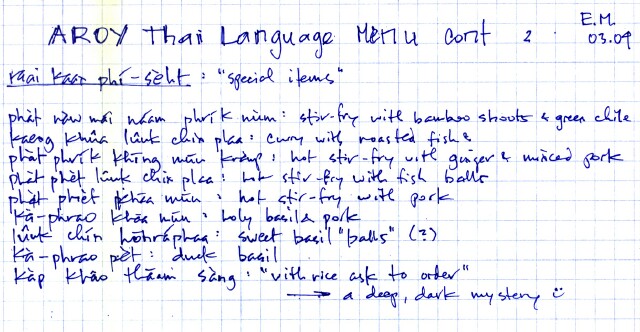 AROY Thai Language Menu Cont 2
E.M.
03.09
raai kaan phí-sèht : "special items"
phàt nàw mái náam phrík nùm : stir-fry with bamboo shoots & green chile
kaeng khûa lûuk chín plaa : curry with roasted fish &
phàt phrík khǐng mǔu kràwp : hot stir-fry with ginger & minced pork
phàt phèt lûuk chín plaa : hot stir-fry with fish balls
phàt phèt khǎa mǔu : hot stir-fry with pork
kà-phrao khǎa mǔu : holy basil & pork
lûuk chín hǒhráphaa : sweet basil "balls" (?)
kà-phrao pèt : duck basil
kàp khâo thǎam sàng : "with rice ask to order"
→ a deep, dark mystery ☺